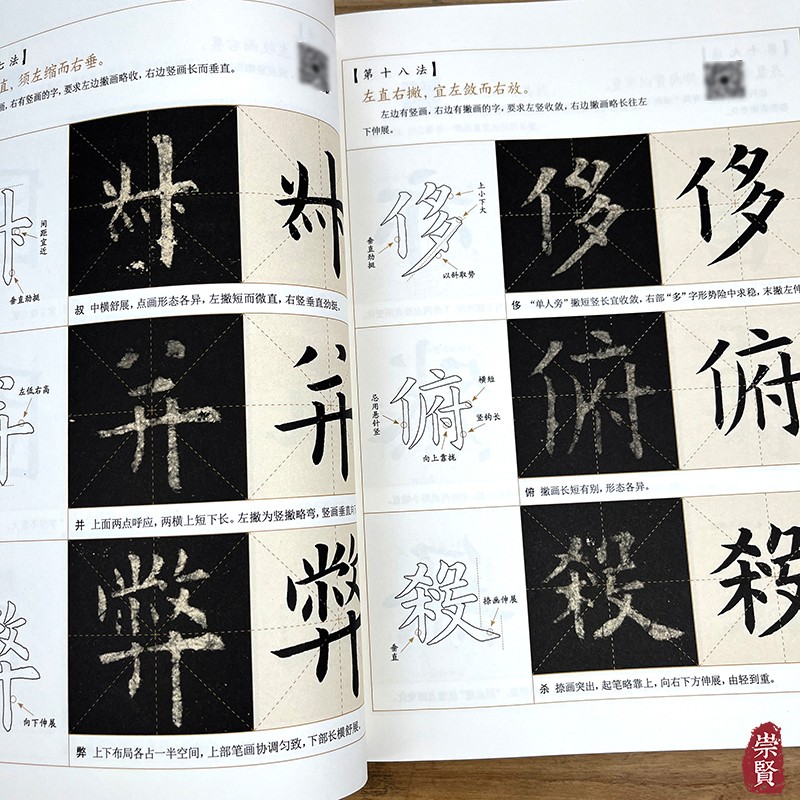 七法】
直，须左缩而右垂。
画，右有竖画的字，要求左边撇画略收，右边竖画长而垂直。
间距宜近
垂直劲挺
叔 中横舒展，点画形态各异，左撇短而微直，右竖垂直劲挺。
左低右高
并
并 上面两点呼应，两横上短下长。左撇为竖撇略弯，竖画垂直向下
弊
向下伸展
弊 上下布局各占一半空间，上部笔画协调匀致，下部长横舒展。
【第十八法】
左直右撇，宜左敛而右放。
左边有竖画，右边有撇画的字，要求左竖收敛，右边撇画略长往左
下伸展。
侈
上小下大
垂直劲挺
以斜取势
侈 “单人旁”撇短竖长宜收敛，右部“多”字形势险中求稳，末撇左伸
俯
横短
忌用悬针竖
竖钩长
向上靠拢
俯 撇画长短有别，形态各异。
殺
捺画伸展
垂直
杀 捺画突出，起笔略靠上，向右下方伸展，由轻到重。
崇賢